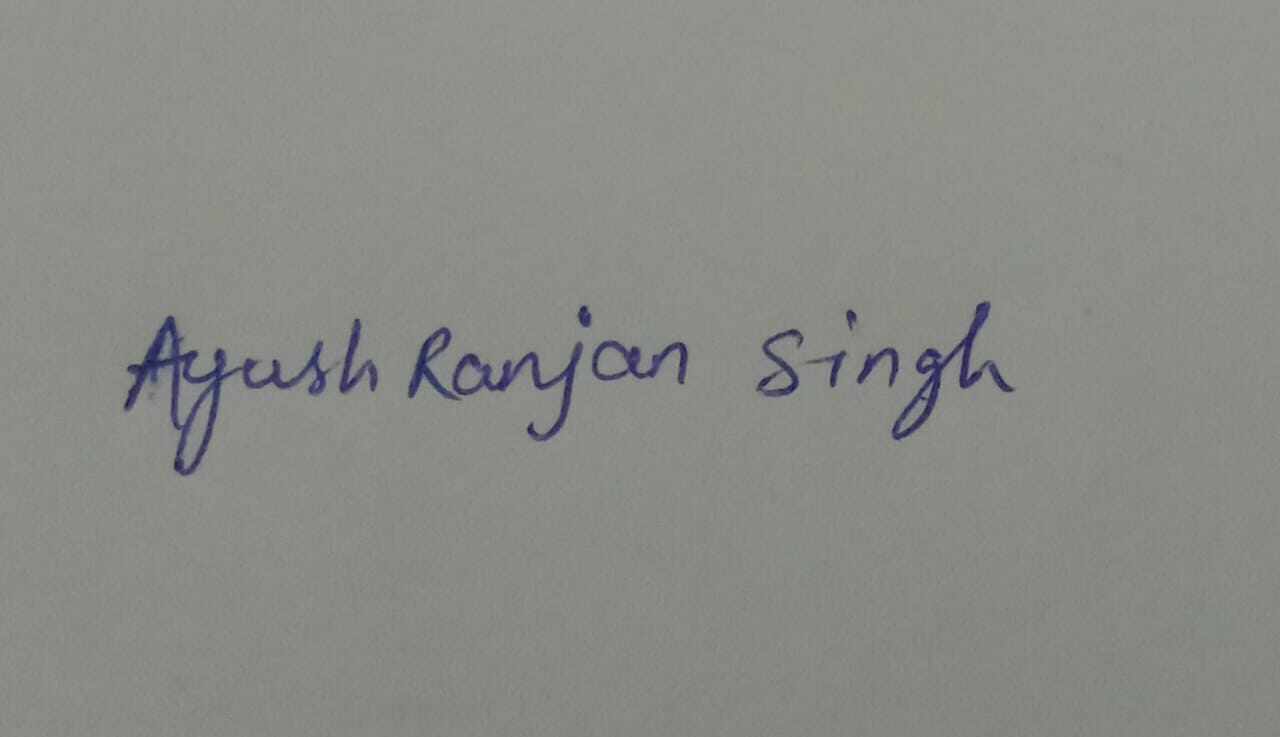 Ayush Ranjan Singh